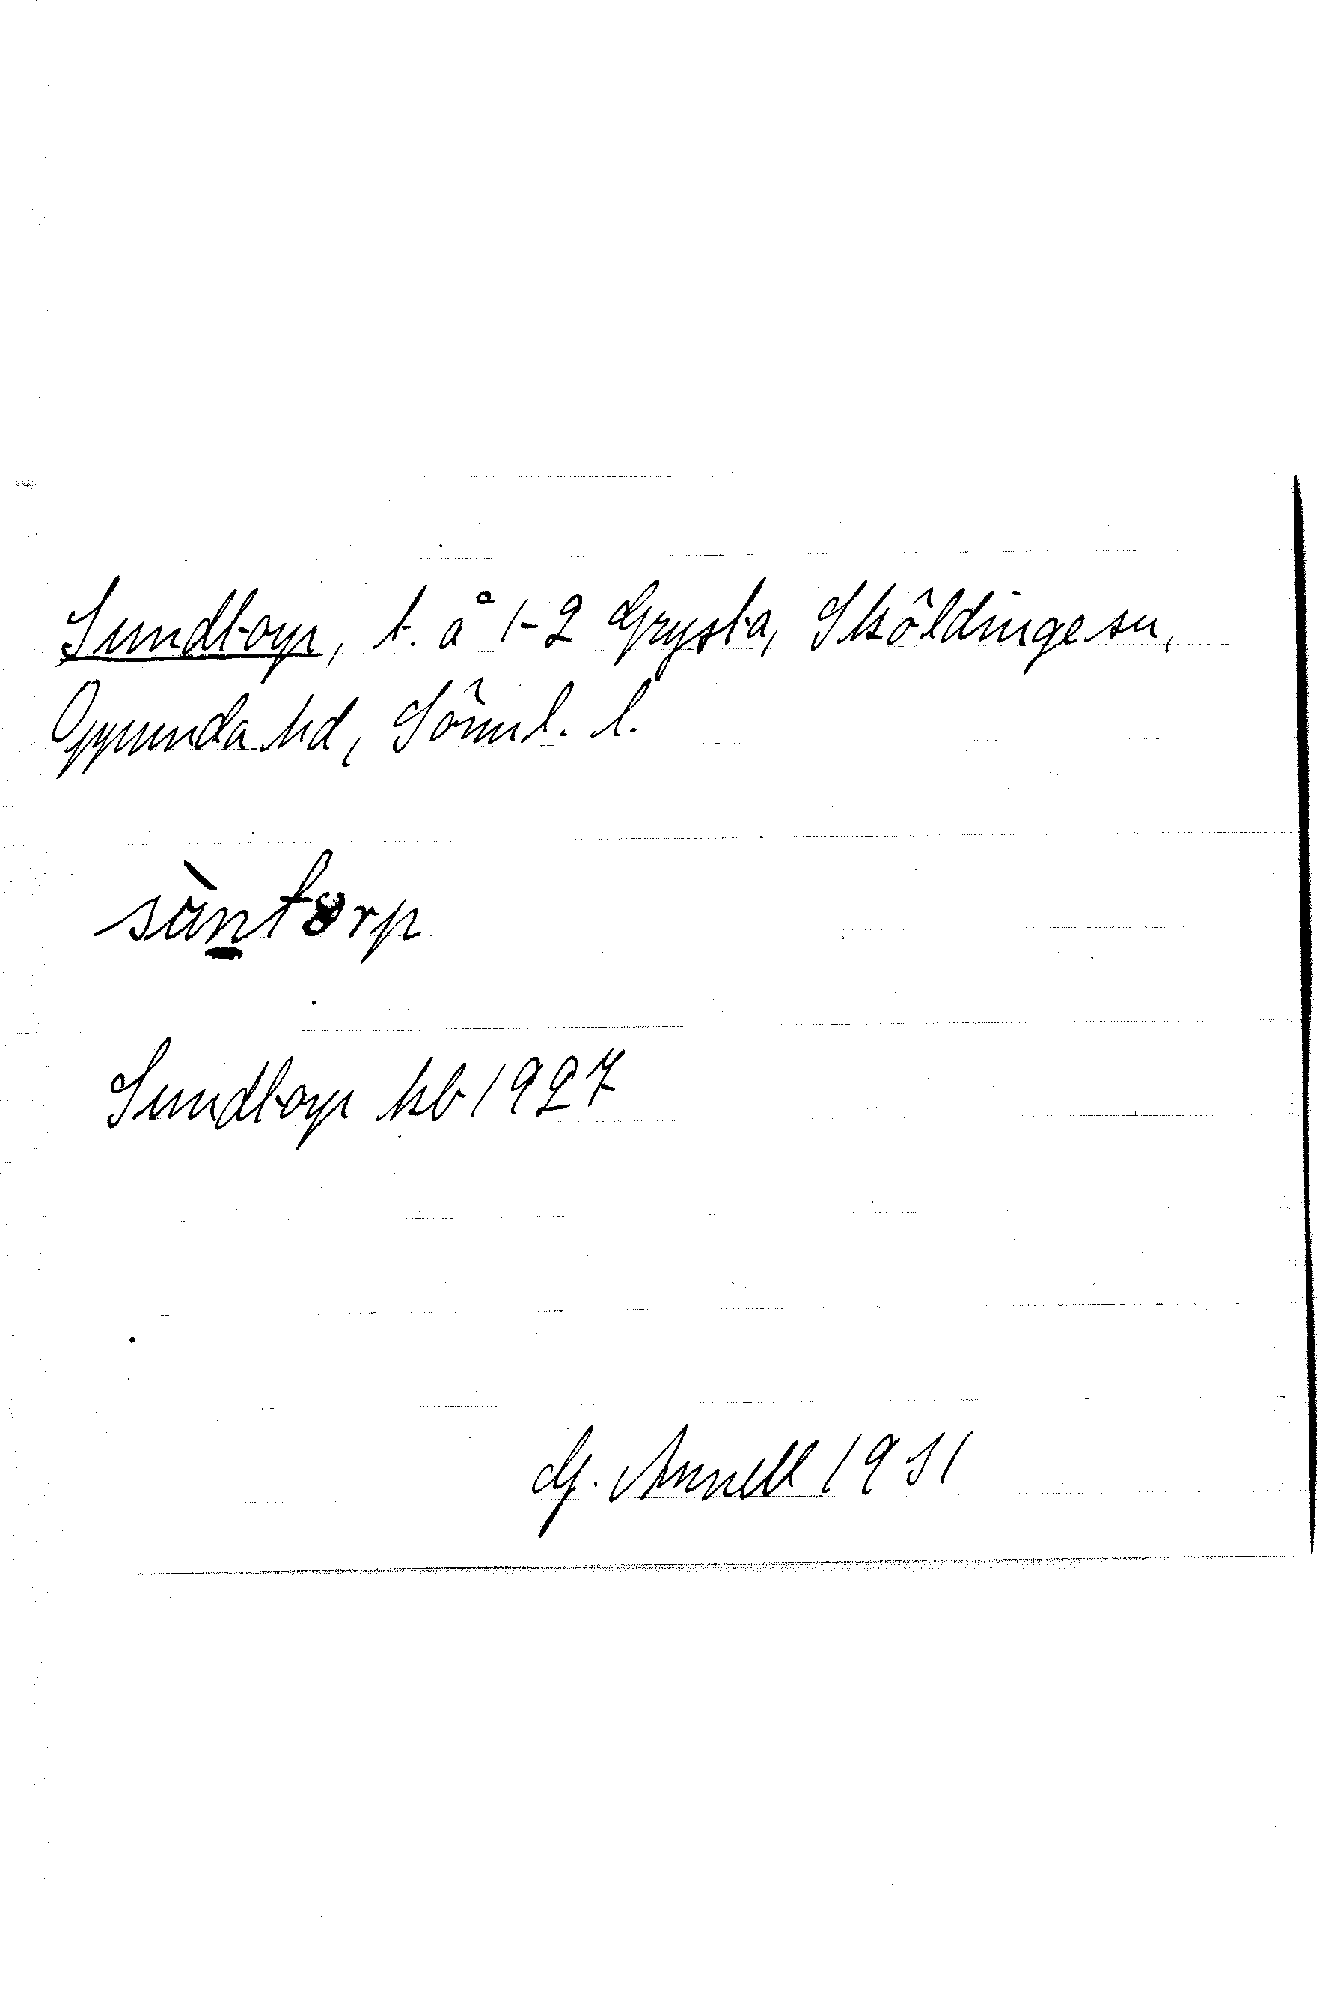 Sundtorp, t. å 1-2 Grysta, Sköldinge sn,
Oppunda hd, Söml. l.
sàntorp
Sundtorp kb 1927
G. Annell 1931